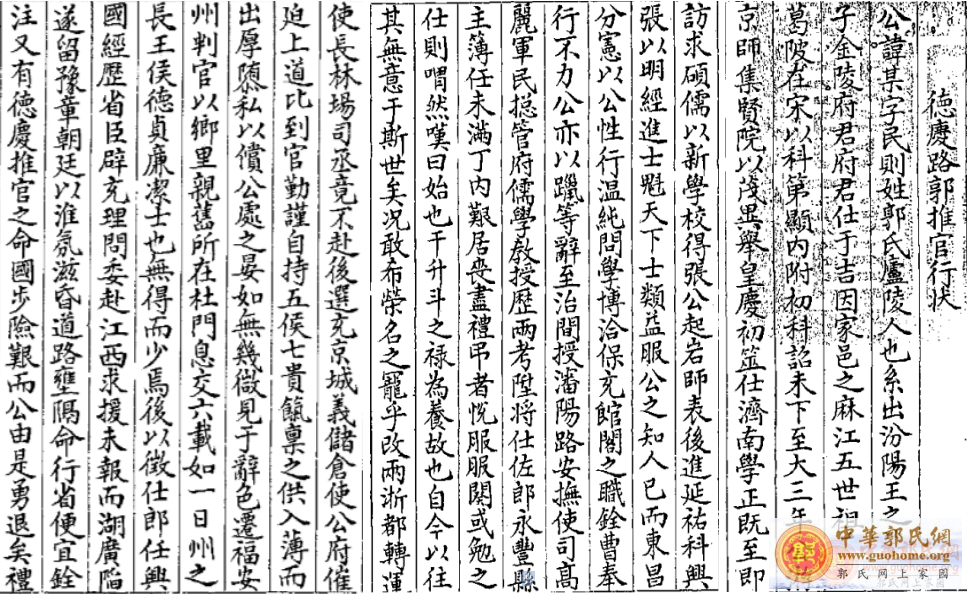 德慶路郭推官行狀
公諱某字民則姓郭氏廬陵人也系出汾陽王之
子金陵府君府君仕于吉因家邑之麻江五世祖
葛陂在宋以科第顯内附初科詔未下至大三年
京師集賢院以茂異舉皇慶初筮仕濟南學正既至即
訪求碩儒以新學校得張公起岩師表後進延祐科興
張以明經進士魁天下士類益服公之知人已而東昌
分憲以公性行温純問學博洽保充館閣之職銓曹奉
行不力公亦以躐等辭至治間授瀋陽路安撫使司高
麗軍民捴管府儒學教授歷兩考陞将仕佐郎永豐縣
主簿任未滿丁内艱居喪盡禮弔者悦服服闋或勉之
仕則喟然嘆曰始也干升斗之禄為養故也自今以往
其無意于斯世矣况敢希榮名之寵乎改兩浙都轉運
使長林場司丞竟不赴後選充京城義儲倉使公府催
迫上道比到官勤謹自持五侯七貴餼禀之供入薄而
出厚隨私以償公處之晏如無幾微見于辭色遷福安
州判官以鄉里親舊所在杜門息交六載如一日州之
長王侯德貞廉潔士也無得而少焉後以徵仕郎任興
國經歷省臣辟充理問委赴江西求援未報而湖廣陷
遂留豫章朝廷以淮氛滋昏道路壅隔命行省便宜銓
注又有德慶推官之命國步險艱而公由是勇退矣禮
中華郭氏網
www.guohome.org
郭氏网上家園